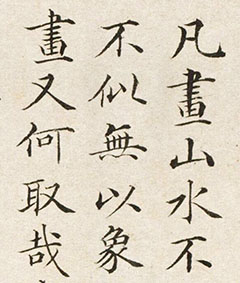 凡畫山水不
不似無以象
畫又何取哉